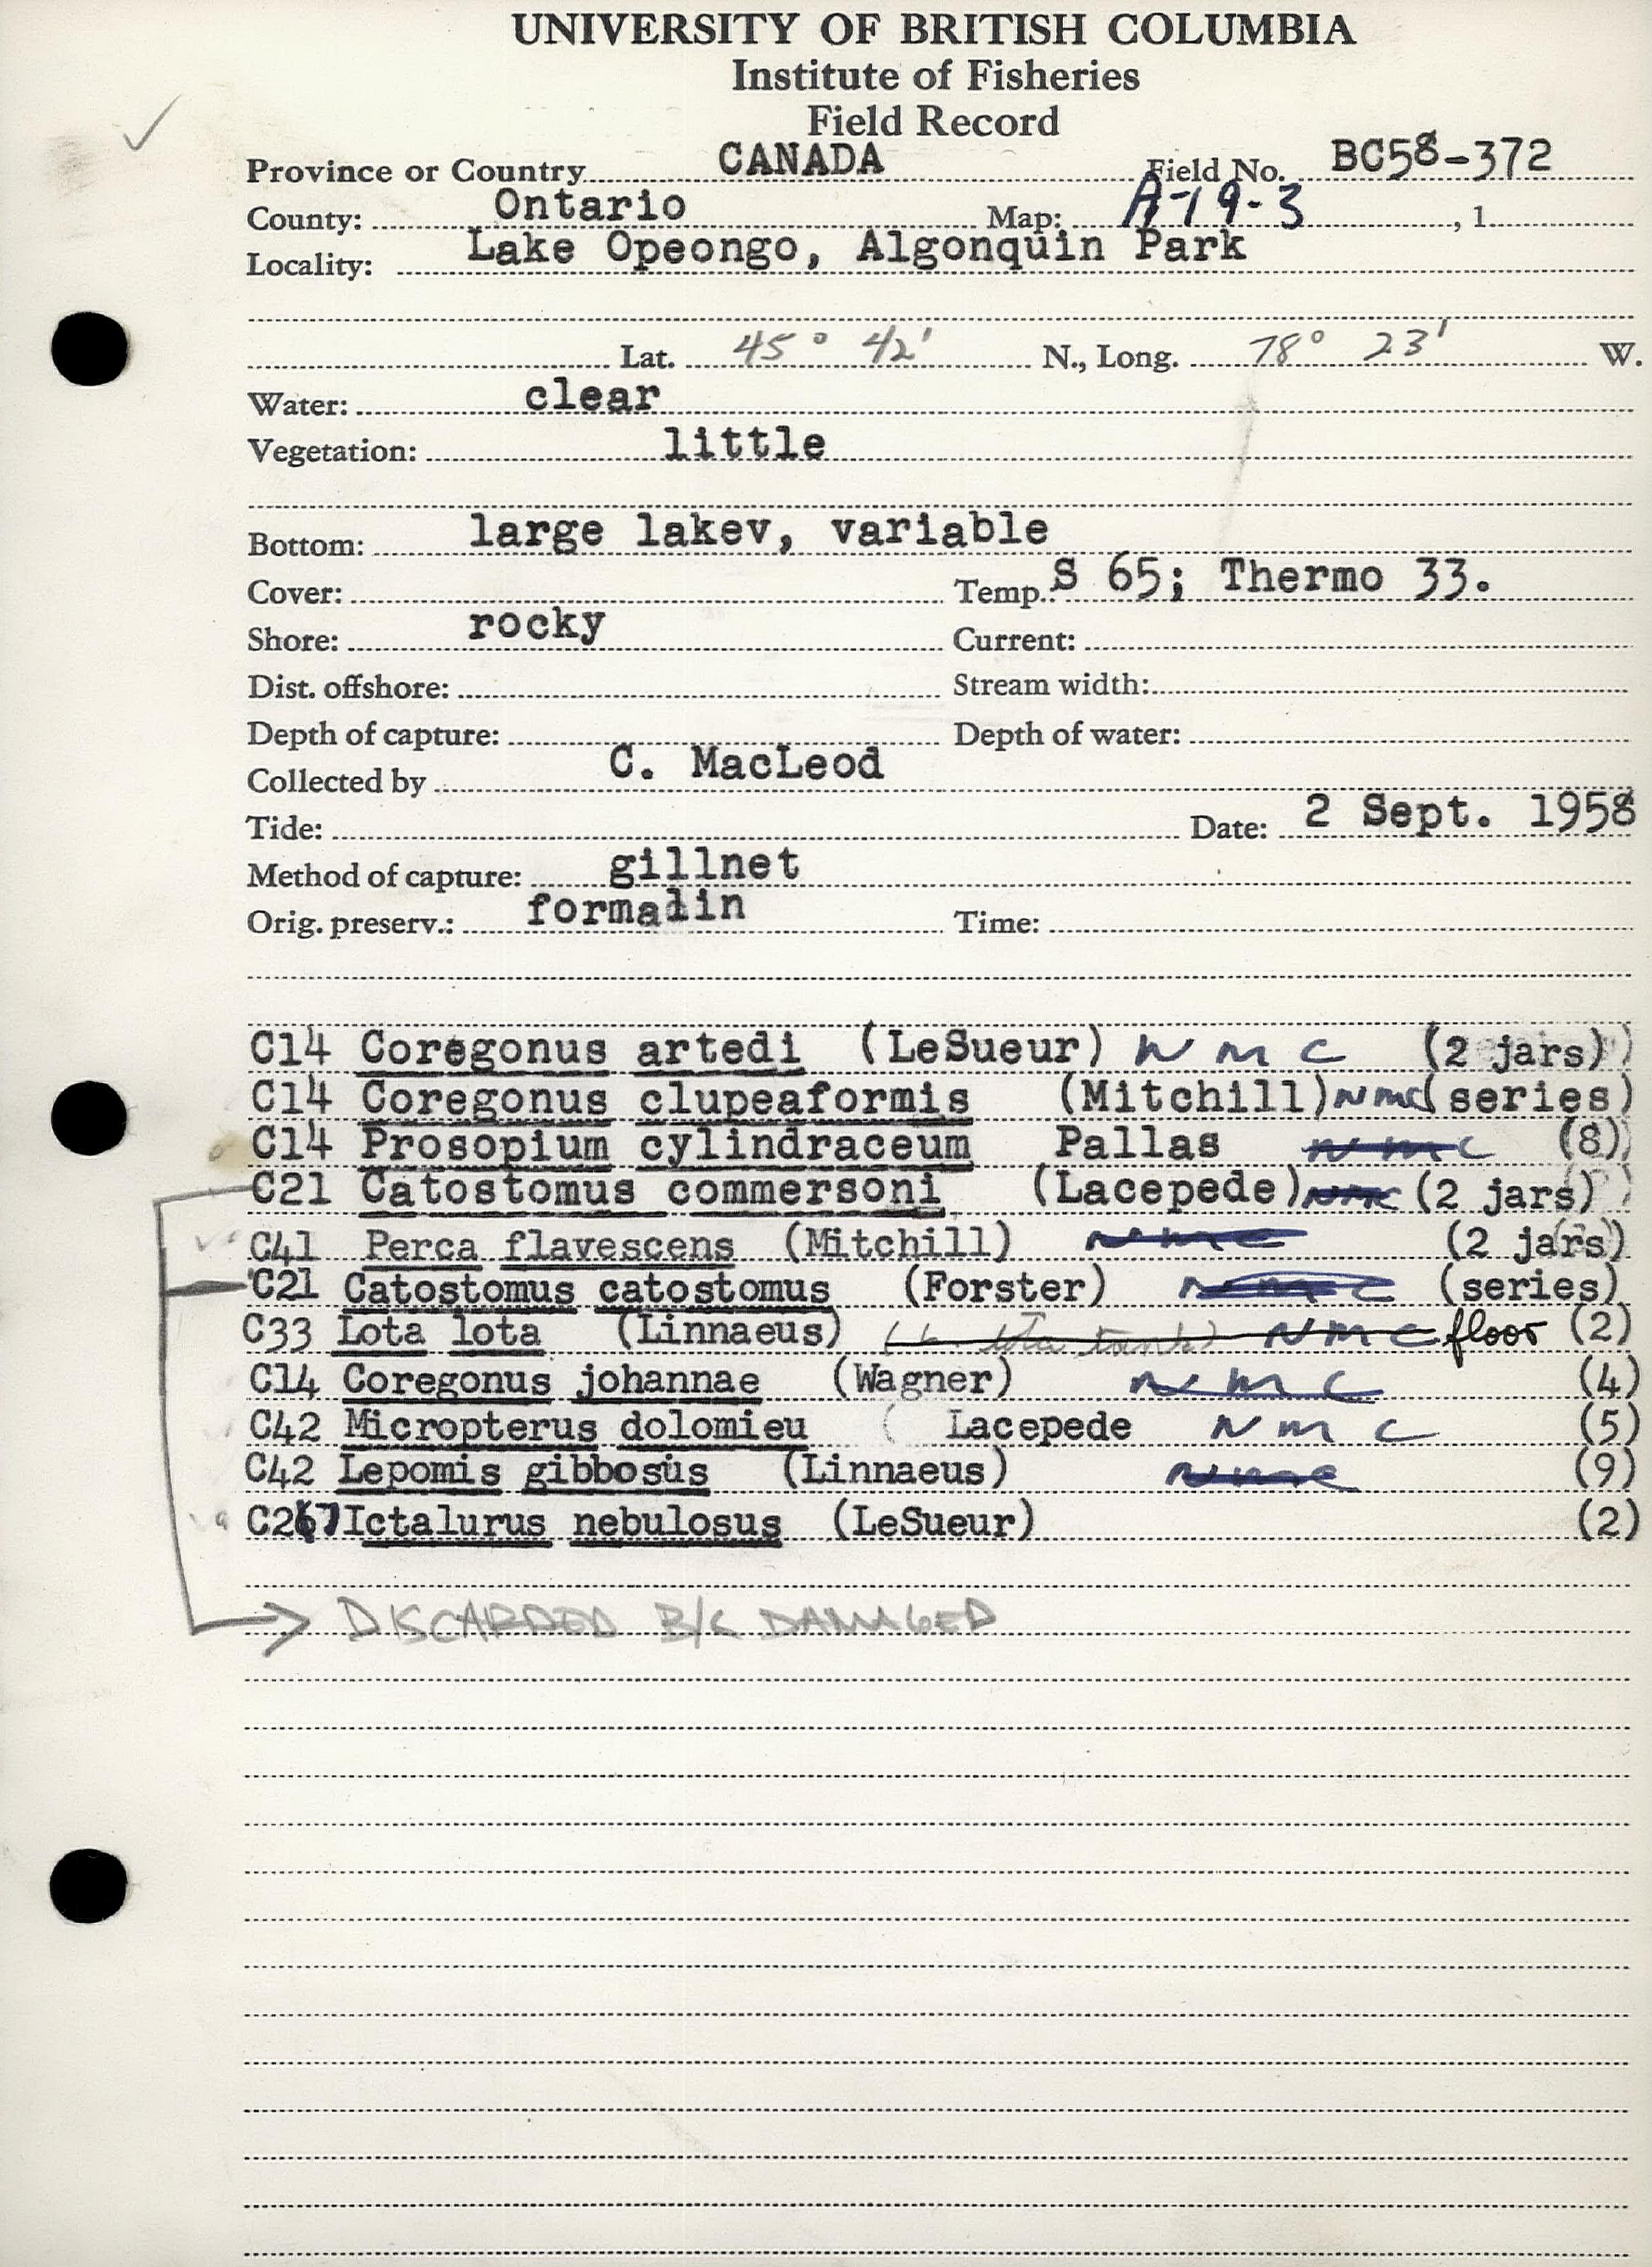 UNIVERSITY OF BRITISH COLUMBIA
Institute of Fisheries
Field Record
Province or Country CANADA Field No. BC58-372
County: Ontario Map: A-19-3 , 1
Locality: Lake Opeongo, Algonquin Park
Lat. 45° 42' N., Long. 78° 23' W.
Water: clear
Vegetation: little
Bottom: large lakev, variable
Cover: Temp. S 65; Thermo 33.
Shore: rocky Current:
Dist. offshore: Stream width:
Depth of capture: Depth of water:
Collected by C. MacLeod
Tide: Date: 2 Sept. 1958
Method of capture: gillnet
Orig. preserv.: formalin Time:
C14 Coregonus artedi (LeSueur) NMC (2 jars)
C14 Coregonus clupeaformis (Mitchill) NMC (series)
C14 Prosopium cylindraceum Pallas NMC (8)
C21 Catostomus commersoni (Lacepede) NMC (2 jars)
C41 Perca flavescens (Mitchill) NMC (2 jars)
C21 Catostomus catostomus (Forster) NMC (series)
C33 Lota lota (Linnaeus) NMC floor (2)
C14 Coregonus johannae (Wagner) NMC (4)
C42 Micropterus dolomieu ( Lacepede NMC (5)
C42 Lepomis gibbosus (Linnaeus) NMC (9)
C27 Ictalurus nebulosus (LeSueur) (2)
DISCARDED B/C DAMAGED